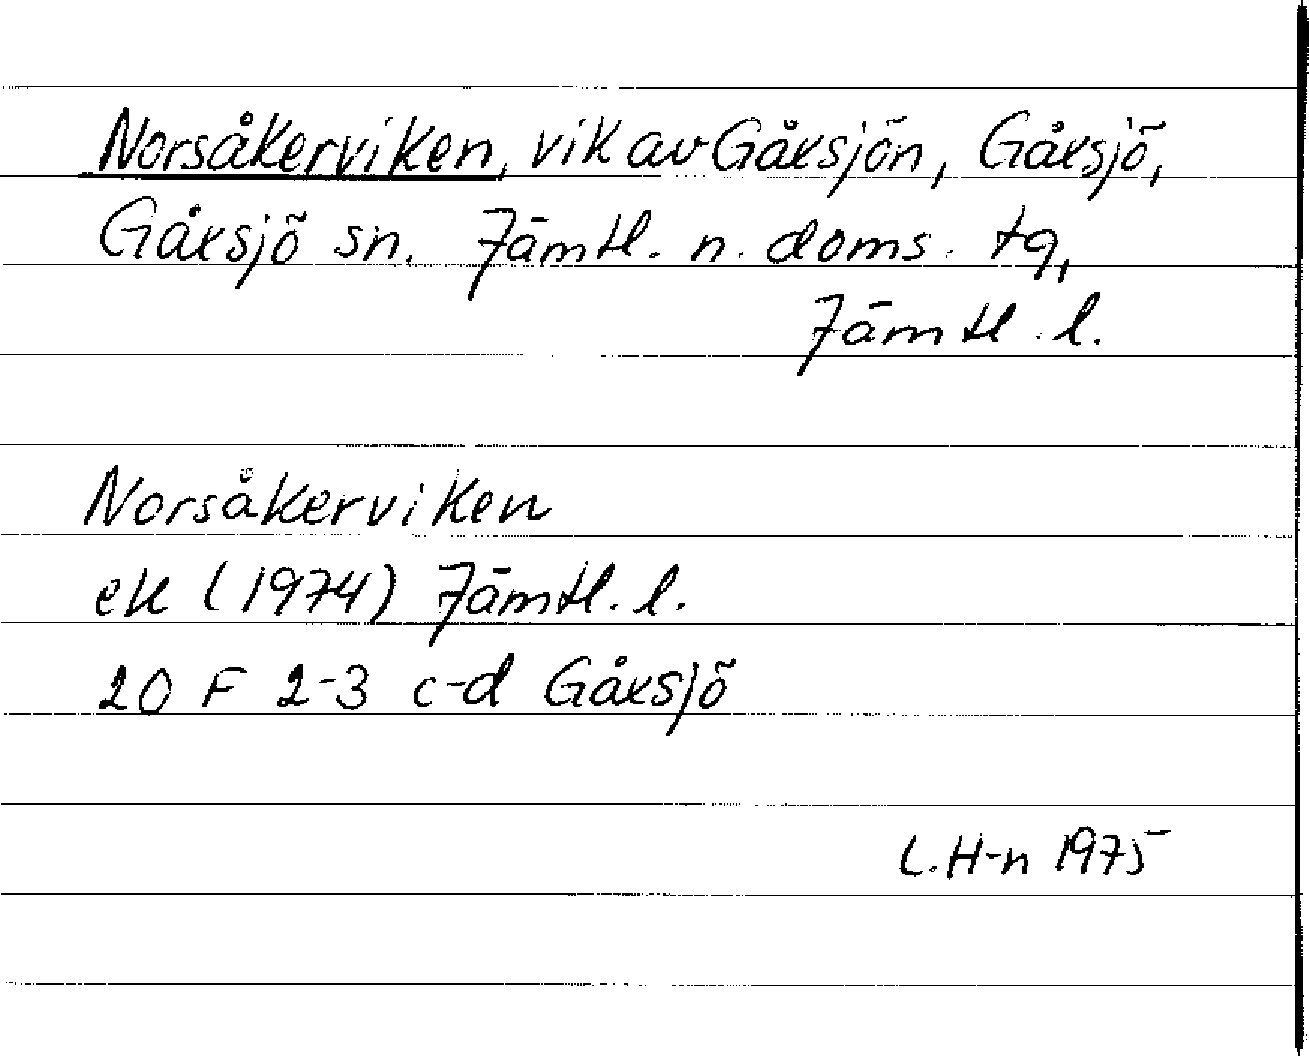 Norsåkerviken, vik av Gåxsjön, Gåxsjö,
Gåxsjö sn. Jämtl. n. doms. tg,
Jämtl. l.
Norsåkerviken
ek (1974) Jämtl. l.
20 F 2-3 c-d Gåxsjö
L.H-n 1975